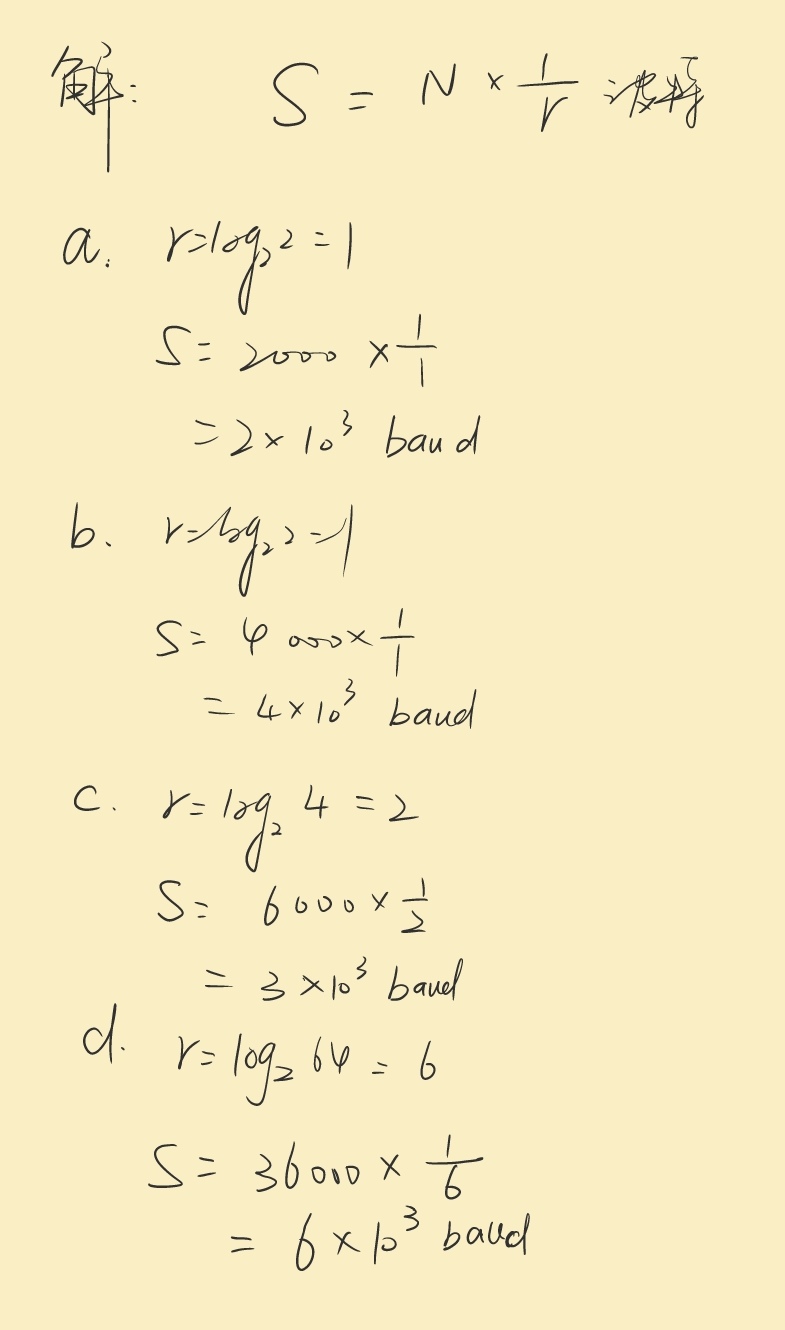 解: S = N × 1/r 波特
a. r=log₂2=1
S= 2000 × 1/1
=2×10³ baud
b. r=log₂2=1
S= 4000× 1/1
= 4×10³ baud
c. r= log₂ 4 =2
S= 6000× 1/2
= 3×10³ baud
d. r= log₂ 64 = 6
S= 36000 × 1/6
= 6×10³ baud